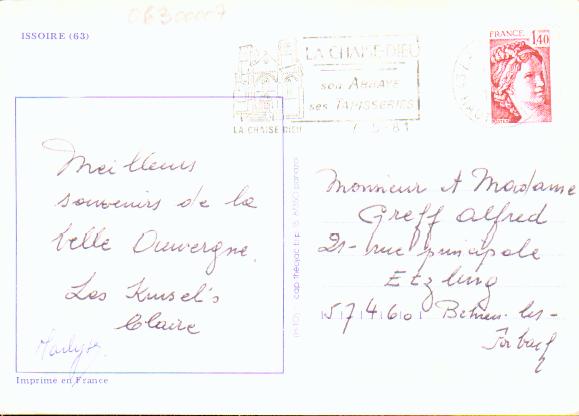 06300007
ISSOIRE (63)
FRANCE
1,40
LA CHAISE-DIEU
son ABBAYE
ses TAPISSERIES
LA CHAISE DIEU
7-5-81
Meilleurs
souvenirs de la
belle Auvergne.
Les
Claire
Marlyse
Monsieur et Madame
Greff Alfred
21- rue principale
Etzling
57460 Behren-les-
Forbach
Imprimé en France